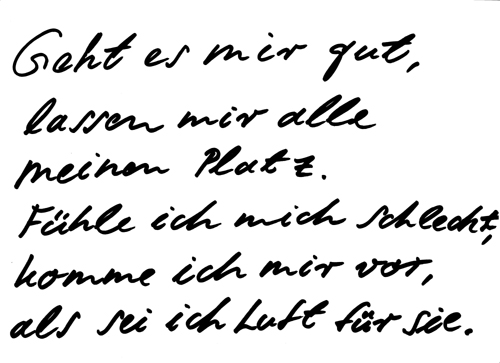 Geht es mir gut,
lassen mir alle
meinen Platz.
Fühle ich mich schlecht,
komme ich mir vor,
als sei ich Luft für sie.